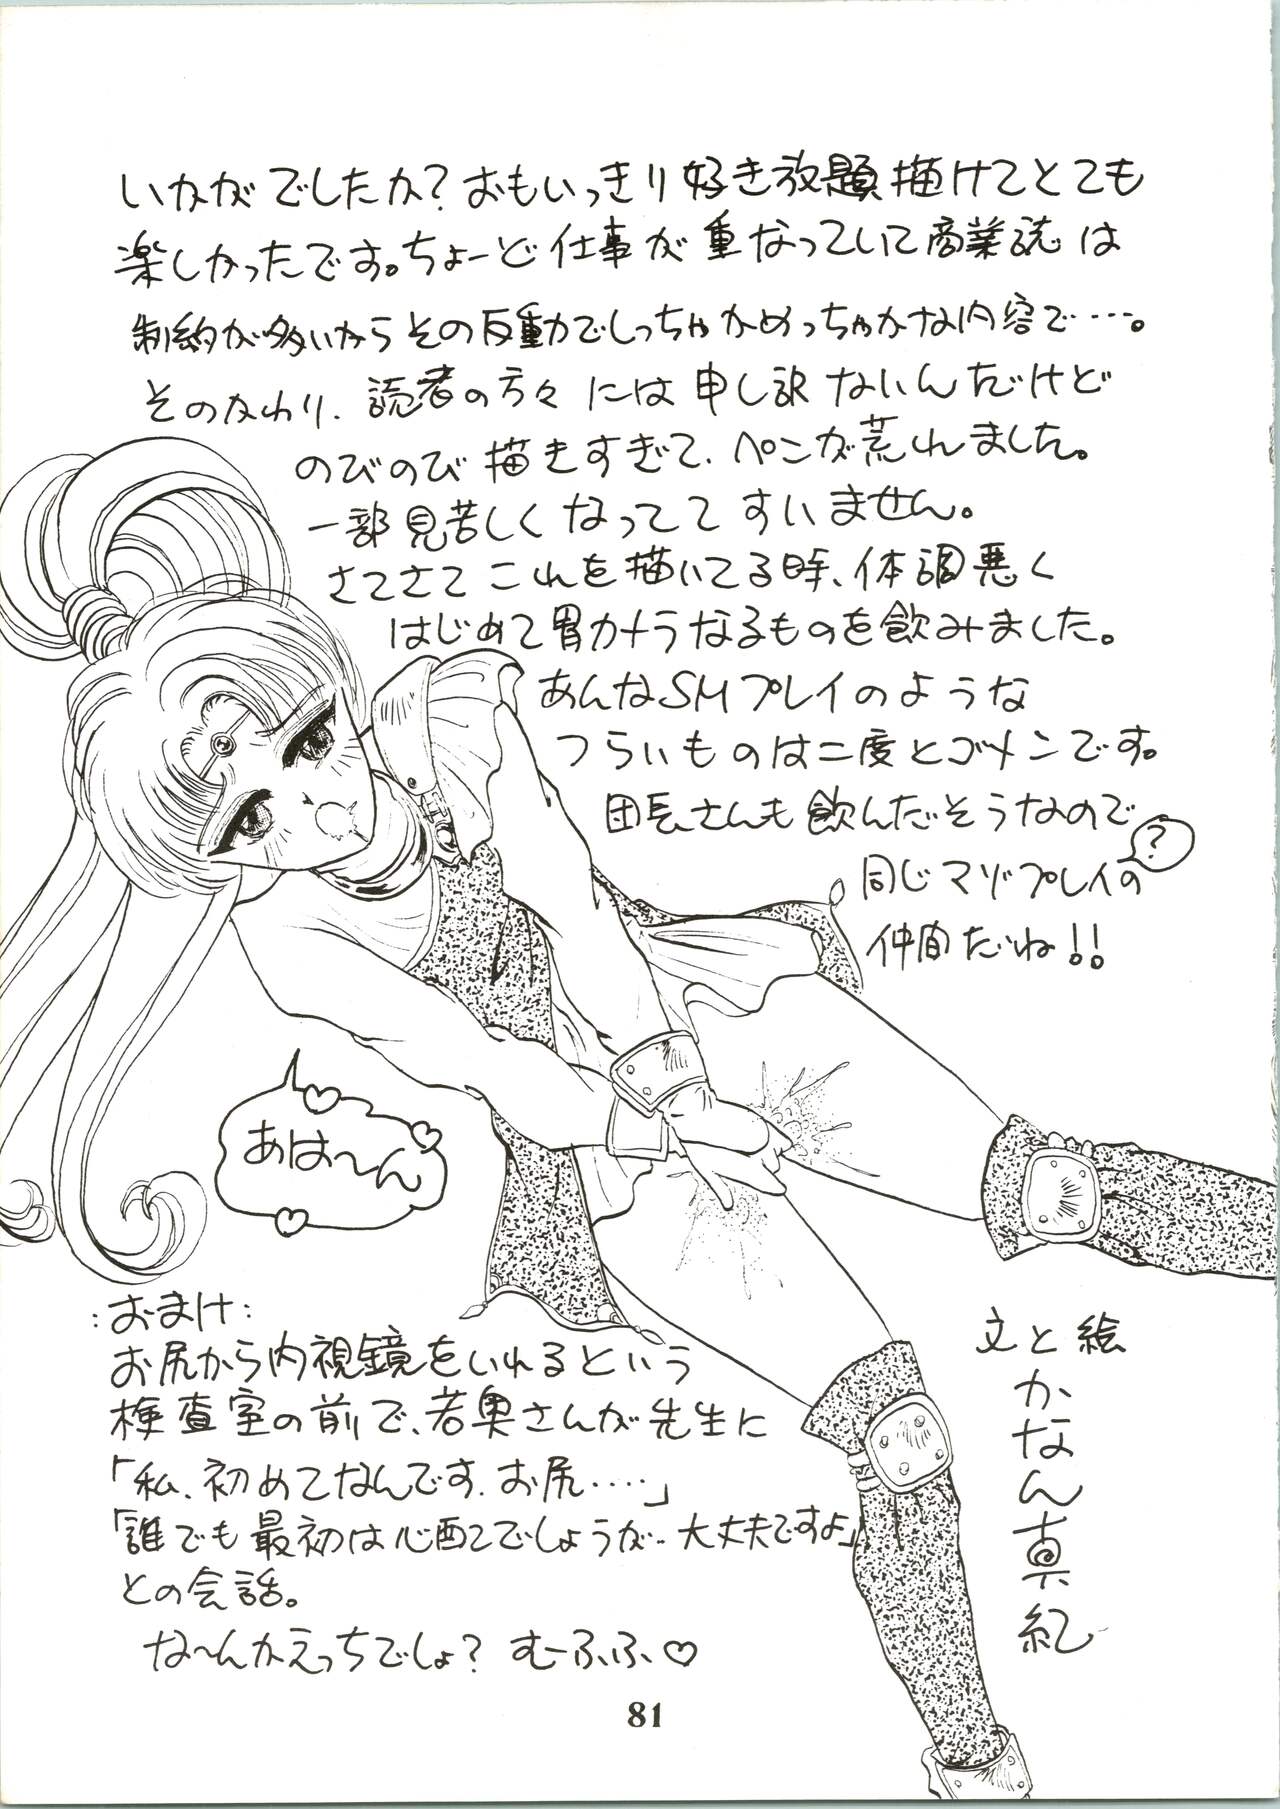 いかがでしたか?おもいっきり好き放題描けてとても
楽しかったです。ちょーど仕事が重なっていて商業誌は
制約が多いからその反動でしっちゃかめっちゃかな内容で……。
そのかわり、読者の方々には申し訳ないんだけど
のびのび描きすぎて、ペンが荒れました。
一部見苦しくなっててすいません。
さてさてこれを描いてる時、体調悪く
はじめて胃カメラなるものを飲みました。
あんなSMプレイのような
つらいものは二度とゴメンです。
団長さんも飲んだそうなので
同じマゾプレイの?
仲間だね!!
あは〜ん
:おまけ:
お尻から内視鏡をいれるという
検査室の前で、若奥さんが先生に
「私、初めてなんです、お尻‥‥」
「誰でも最初は心配でしょうが‥大丈夫ですよ」
との会話。
な〜んかえっちでしょ?むーふふ♡
文と絵
かなん真紀
81